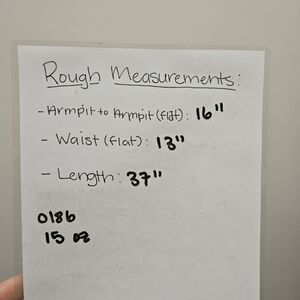 Rough Measurements:
- Armpit to Armpit (flat): 16"
- Waist (flat): 13"
- Length: 37"
0186
15 oz